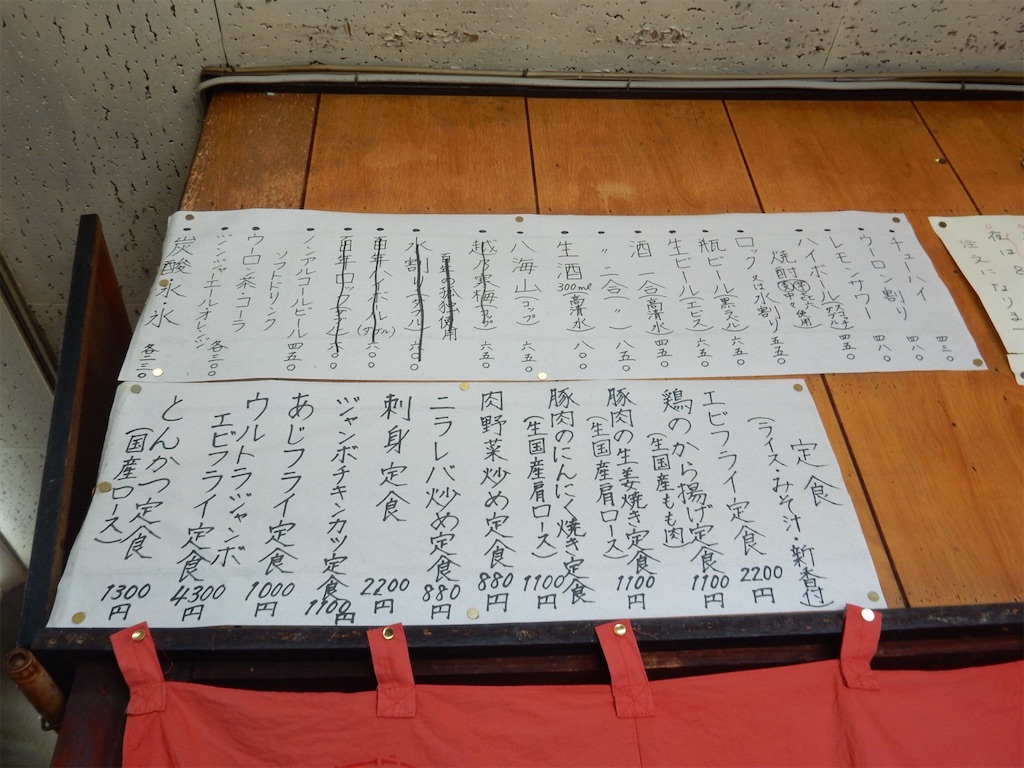 チューハイ 四三〇
ウーロン割り 四八〇
レモンサワー 四八〇
ハイボール 四五〇
焼酎
ロック又は水割り 五五〇
瓶ビール(黒ラベル) 六五〇
生ビール(エビス) 六五〇
酒 一合(高清水) 四五〇
〃 二合(〃) 八五〇
生酒300ml(高清水) 八〇
八海山(コップ) 六五〇
越乃寒梅(コップ) 六五〇
ノンアルコールビール 四五〇
ソフトドリンク
ウーロン茶・コーラ
ジンジャーエールオレンジ 各二三〇
炭酸氷 氷 各二三〇
定食
(ライス・みそ汁・新香付)
エビフライ定食 2200円
鶏のから揚げ定食 1100円
(生国産もも肉)
豚肉の生姜焼き定食 1100円
(生国産肩ロース)
豚肉のにんにく焼き定食 1100円
(生国産肩ロース)
肉野菜炒め定食 880円
ニラレバ炒め定食 880円
刺身定食 2200円
ジャンボチキンカツ定食 1100円
あじフライ定食 1000円
ウルトラジャンボ
エビフライ定食 4300円
とんかつ定食 1300円
(国産ロース)